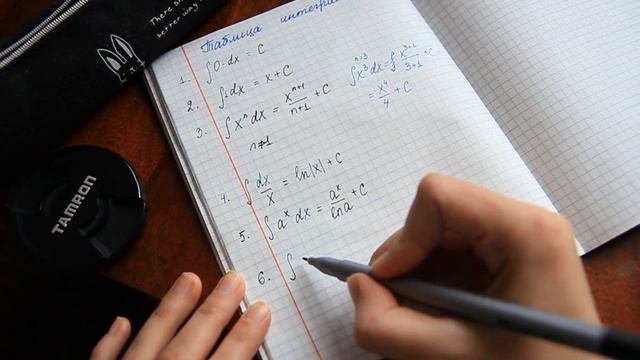 There s
better way!
TAMRON
Таблица интегра
1. ∫0·dx = C
2. ∫1·dx = x + C
3. ∫xⁿdx = xⁿ⁺¹/n+1 + C
n≠1
n=3
∫x³dx = ∫ x³⁺¹/3+1 + C
= x⁴/4 + C
4. ∫ dx/x = ln|x| + C
5. ∫aˣ dx = aˣ/ln a + C
6. ∫